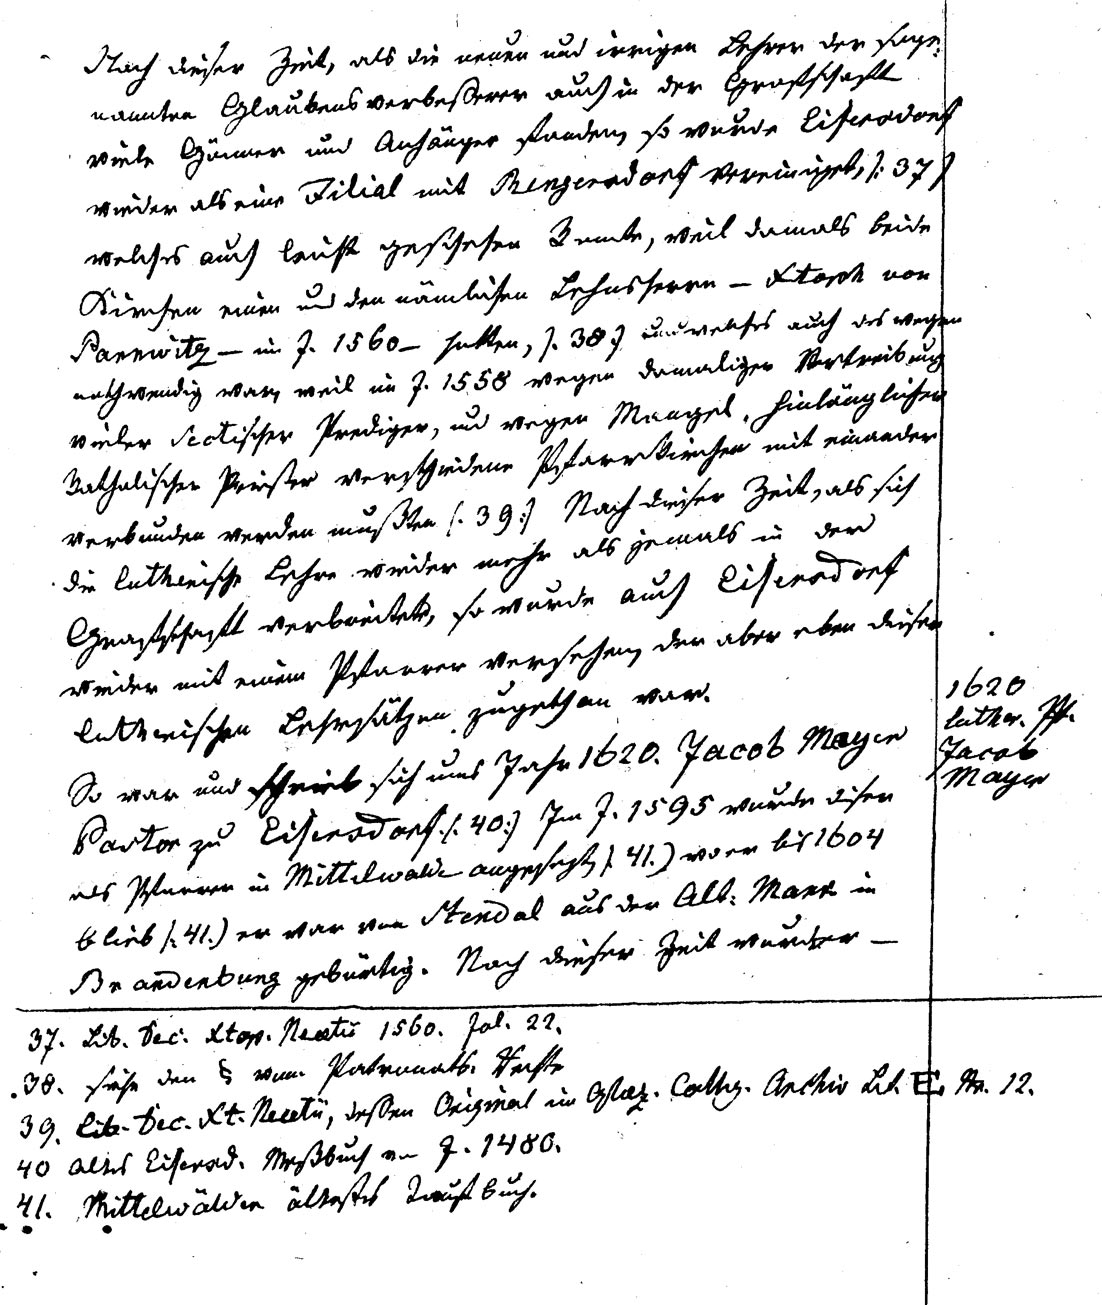 Nach dieser Zeit, als die neuen und irrigen Lehrer der soge:
nannten Glaubensverbeßerer auch in der Grafschaft
viele Gönner und Anhänger fanden, so wurde Eisersdorf
wieder als eine Filial mit Rengersdorf vereiniget, /: 37 /
welches auch leicht geschehen konnte, weil damals beide
Kirchen einen und den nämlichen Lehnsherrn – Xtoph von
Pannwitz – im J. 1560 – hatten, /. 38 :/ und welches auch des wegen
nothwendig war, weil im J. 1558 wegen damaliger Vertreibung
vieler Sectischer Prediger, und wegen Mangel hinlänglicher
Katholischer Priester verschiedene Pfarrkirchen mit einander
verbunden werden mußten (. 39 :) Nach dieser Zeit, als sich
die lutherische Lehre wieder mehr als jemals in der
Grafschaft verbreitete, so wurde auch Eisersdorf
wieder mit einem Pfarrer versehen, der aber eben diesen
lutherischen Lehrsätzen zugethan war.
So war und schrieb sich ums Jahr 1620. Jacob Mayer
Pastor zu Eisersdorf (. 40 :) Im J. 1595 wurde dieser
als Pfarrer in Mittelwalde angesetzt (. 41.) wo er bis 1604
blieb (: 41.) er war von Stendal aus der Alt: Mark in
Brandenburg gebürtig. Nach dieser Zeit wurde er –
1620
luther. Pf.
Jacob
Mayer
37. Lib. Dec. Xtop. Neaetii 1560. fol. 22.
38. siehe den § vom Patronats: Rechte
39. Lib. Dec. Xt. Neaetii, dessen Original im Glaz. Cathg. Archiv Lit. E. Nr. 12.
40 altes Eisersd. Meßbuch v. J. 1480.
41. Mittelwälder ältestes Taufbuch.